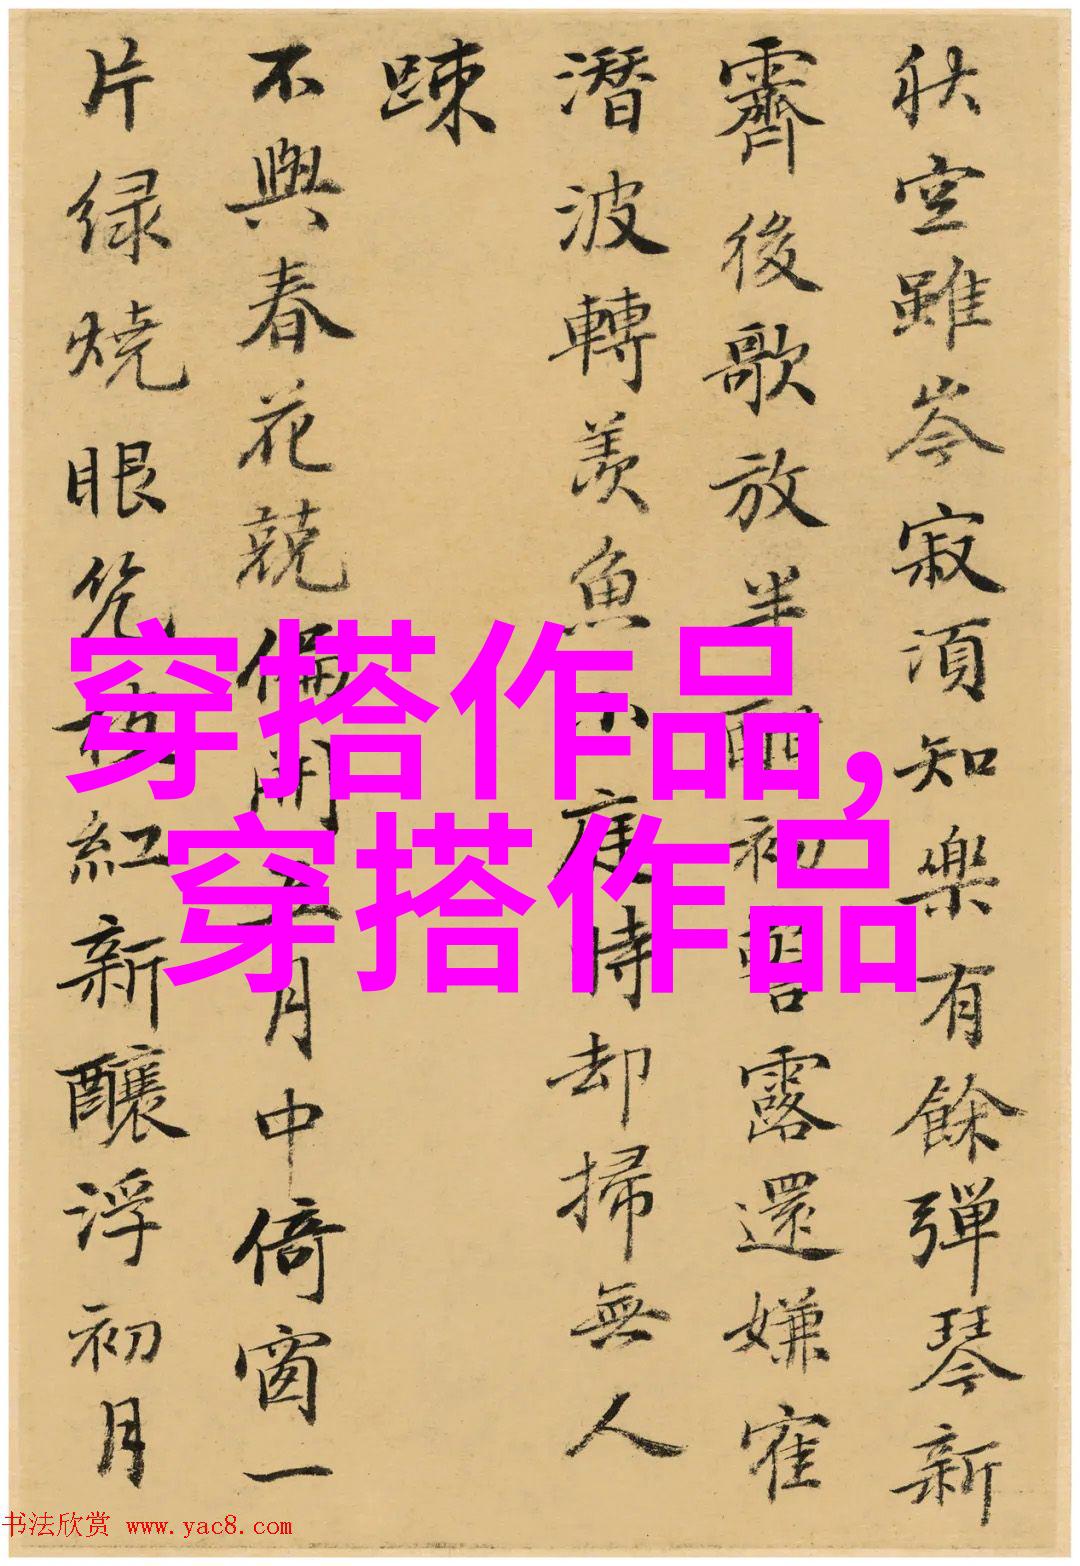 秋空雖岑寂須知樂有餘彈琴新
霽後歌放半酣初警露還嫌寉
潛波轉羨魚小庭時却掃無人
踈
不與春花競偏開五月中倚窗一
片绿燒眼紅新釀浮初月
穿搭作品,
穿搭作品
书法欣赏 www.yac8.com